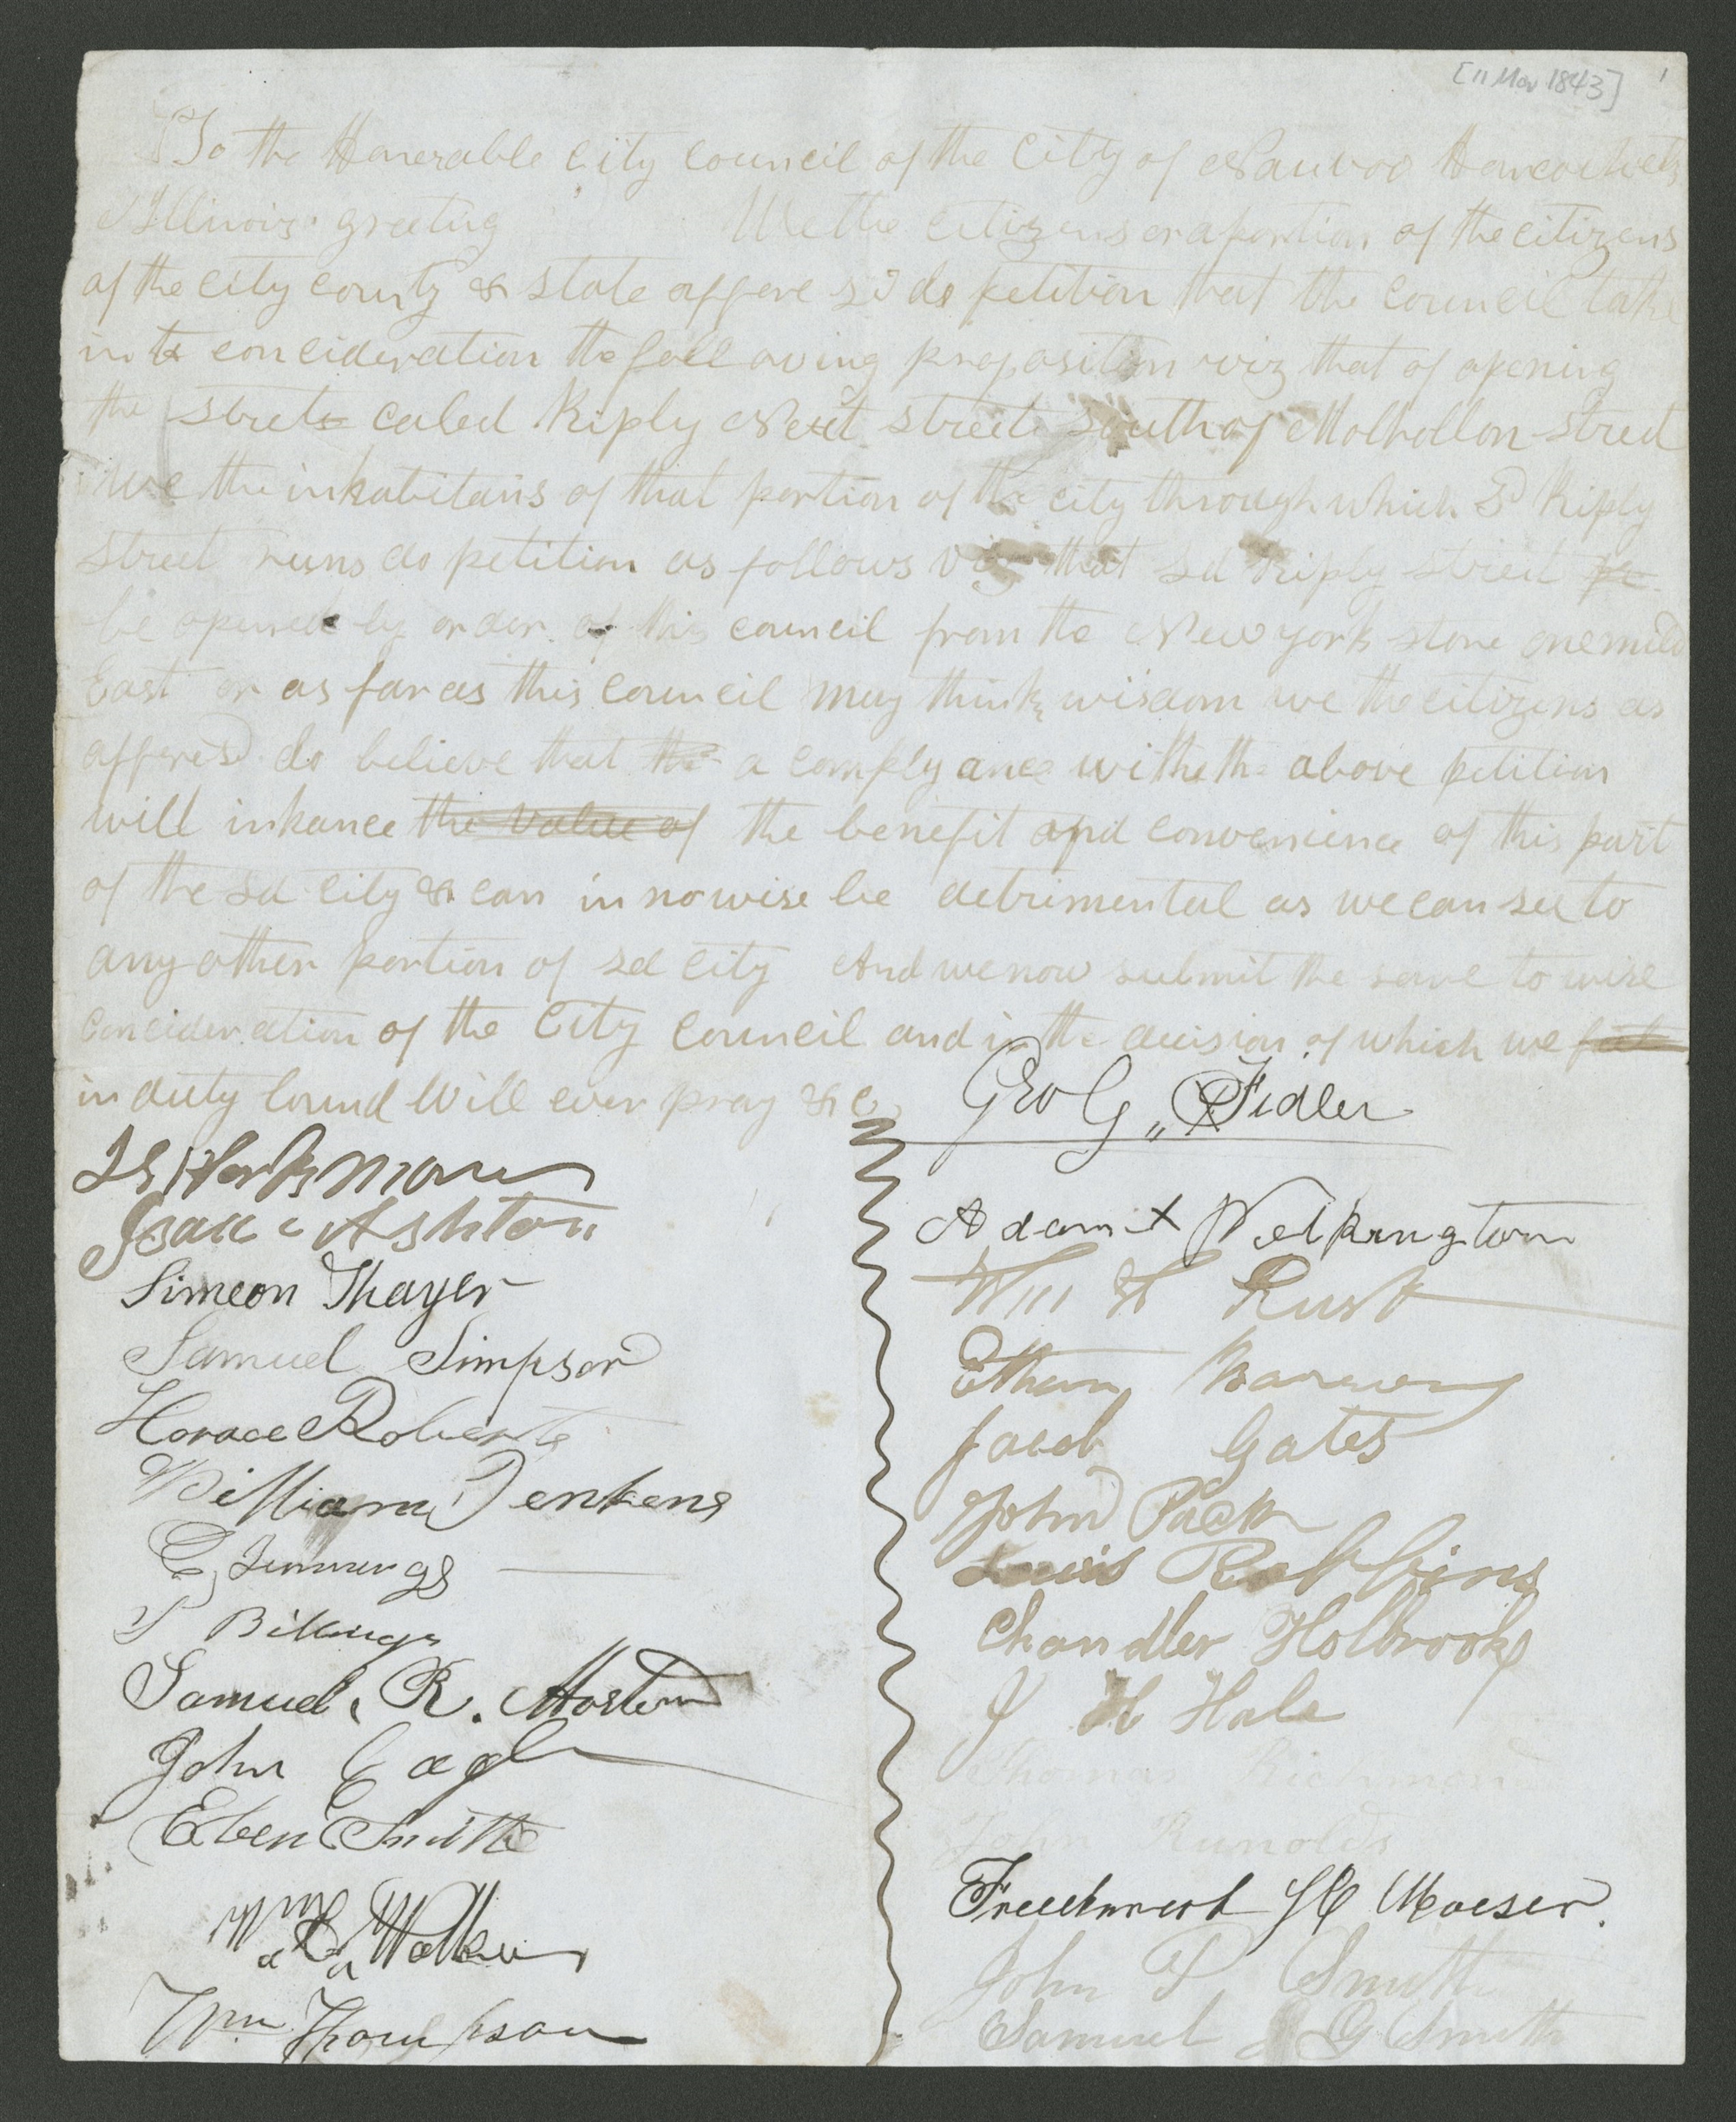 [11 Mar 1843] 1
To the Honerable City Council of the City of Nauvoo Hancock
Illinois greeting We the Citizens or a portion of the citizens
of the City County & state affore sd do petition that the Council take
in to concideration the foll owing proposition viz that of opening
the street caled Riply Next street south of Molhollon street
we the inhabitans of that portion of the city through which Sd Riply
street runs do petition as follows viz that sd Riply street be
be opened by order of this council from the New York store one mile
East or as far as this Council may think wisdom we the citizens as
afforesd do believe that the a complyance with the above petition
will inhance the value of the benefit and convenience of this part
of the sd City & can in no wise be detrimental as we can see to
any other portion of sd City And we now submit the same to wise
concideration of the City Council and in the decision of which we
in duty bound will ever pray &c
Geo G Fidler
Isaac Ashton
Simeon Thayer
Samuel Simpson
Horace Roberts
William Jenkens
Jennings
Billings
Samuel R.
John
Eben Smith
Wm Walker
Wm Thompson
Adam X
Wm H Rust
Ethan
Jacob Gates
John Pack
Lewis Robbins
Chandler Holbrook
J H Hale
Thomas Richmond
John Runolds
H Maeser.
John P Smith
Samuel G Smith